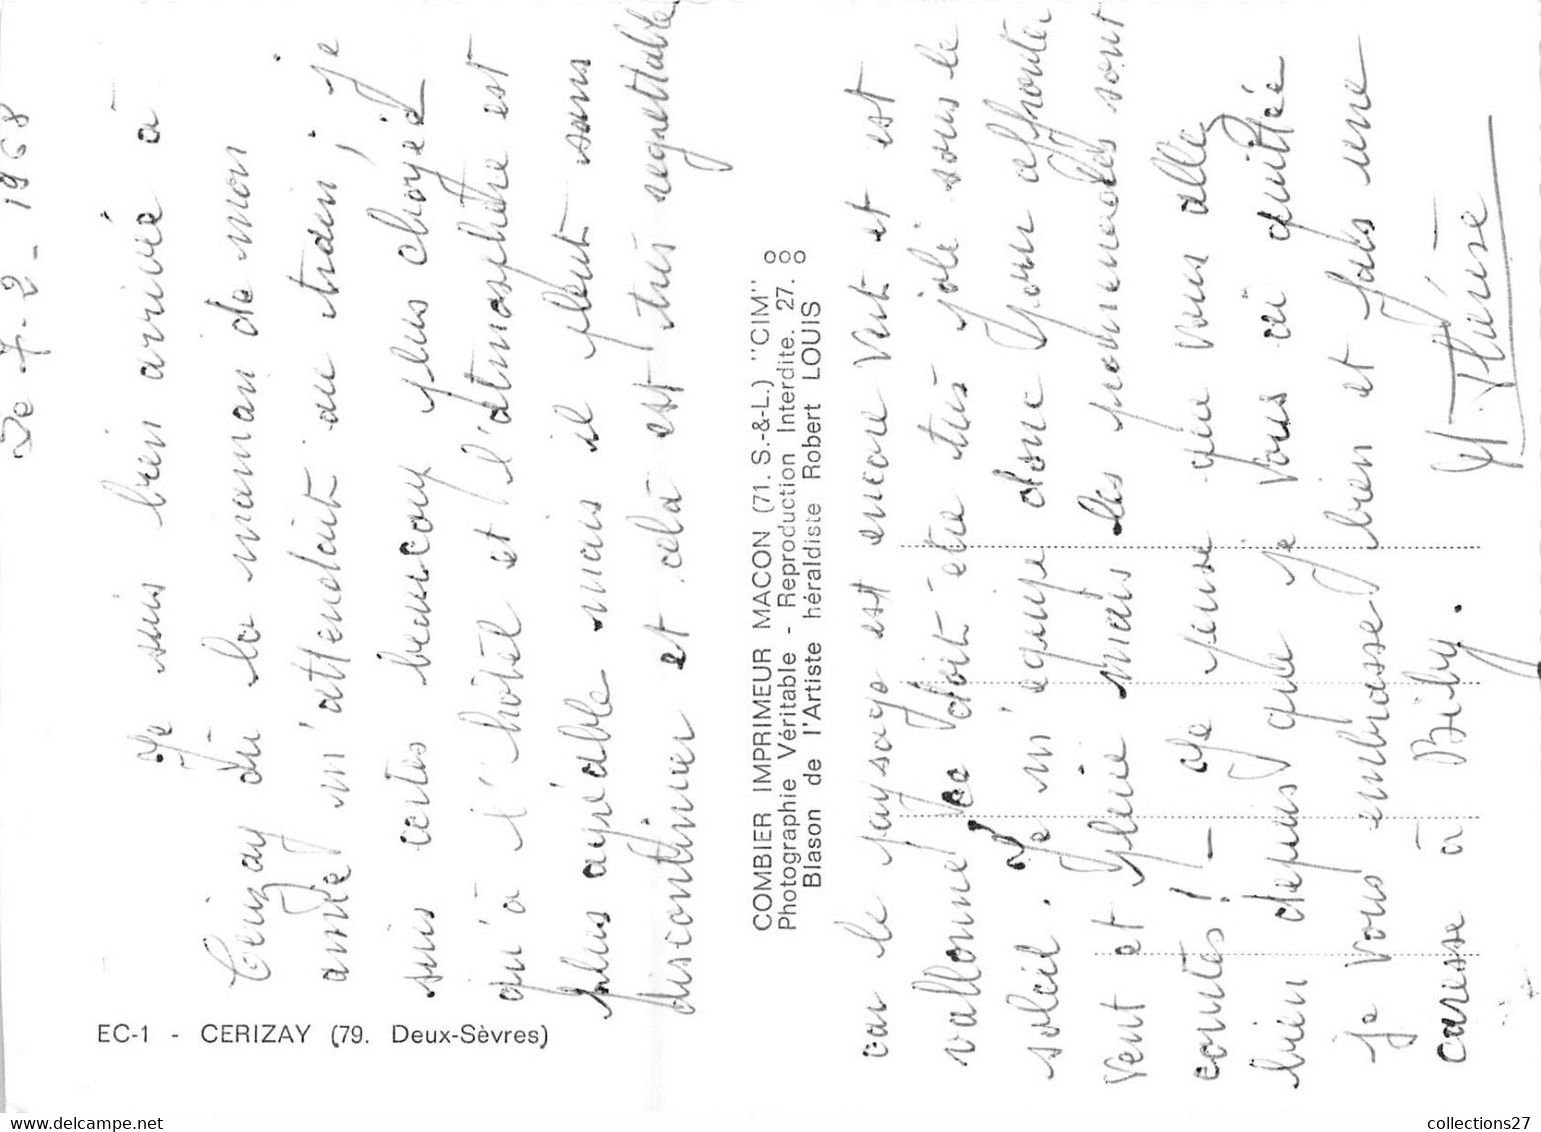 Le 7-2-1968
Je suis bien arrivée à
Cerizay où la maman de mon
amie m'attendait au train ; je
suis certes beaucoup plus choyée
qu'à l'hôtel et l'atmosphère est
plus agréable mais il pleut sans
discontinuer et cela est très regrettable
car le paysage est encore vert et est
vallonné ce doit être très joli sous le
soleil. Je m'équipe donc pour affronter
vent et pluie mais les promenades sont
courtes ! - Je pense que vous allez
bien depuis que je vous ai quittée
je vous embrasse bien et fais une
caresse à Biby.
M. Thérèse
EC-1 - CERIZAY (79. Deux-Sèvres)
COMBIER IMPRIMEUR MACON (71. S.-&-L.) "CIM"
Photographie Véritable - Reproduction Interdite. 27.
Blason de l'Artiste héraldiste Robert LOUIS
collections27